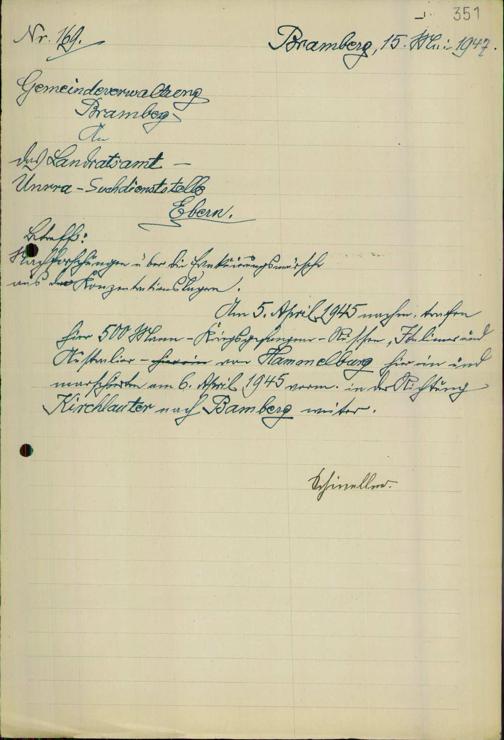 351
Nr. 169.
Bramberg, 15. Mai 1947.
Gemeindeverwaltung
Bramberg
An
das Landratsamt –
Unrra – Suchdienststelle
Ebern.
Betreff:
Nachforschungen über die Evakuierungsmärsche
aus den Konzentrationslagern.
Am 5. April 1945 nachm. trafen
hier 500 Mann – Kriegsgefangene – Russen, Italiener und
Australier – von Hammelburg hier ein und
marschierten am 6. April 1945 vorm. in der Richtung
Kirchlauter nach Bamberg weiter.
Schineller.